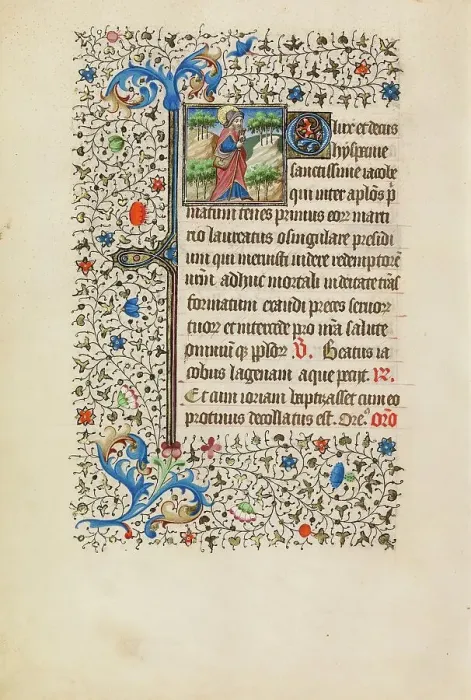 O lux et decus
hyspanie
sanctissime iacobe
qui inter aplos p
matum tenes primus eorꝝ marti
rio laureatus o singulare presidi
um qui meruisti videre redemptorē
nrm adhuc mortali in deitate trās
formatum exaudi preces seruorꝝ
tuorꝝ et intercede pro nra salute
omnium qꝫ pplorꝝ ℣. Beatus ia
cobus lagenam aque petijt. ℟.
Et cum ioriam baptizasset cum eo
protinus decollatus est. Ore.º orō